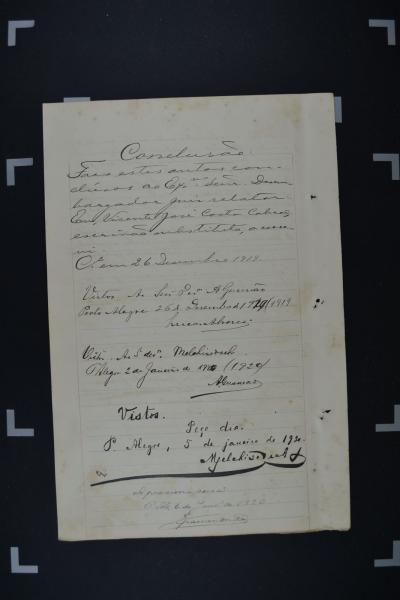 Conclusão
Faço estes autos con-
clusos ao Exmo. Senr. Desem
bargador juiz relator.
Eu, Vicente José Costa Cabral,
escrivão substituto, o escre
vi.
Cls em 26 Dezembro 1919.
Vistos. Ao Snr Des. A Guimão
Porto Alegre 26 de Dezembro 1919/1919
Visto. Ao Sr desr. Melchisedech
P Alegre 2 de Janeiro de (1920)
Vistos.
Peço dia.
P. Alegre, 5 de janeiro de 1920.
Melchisedech
6 Jan. de 1920